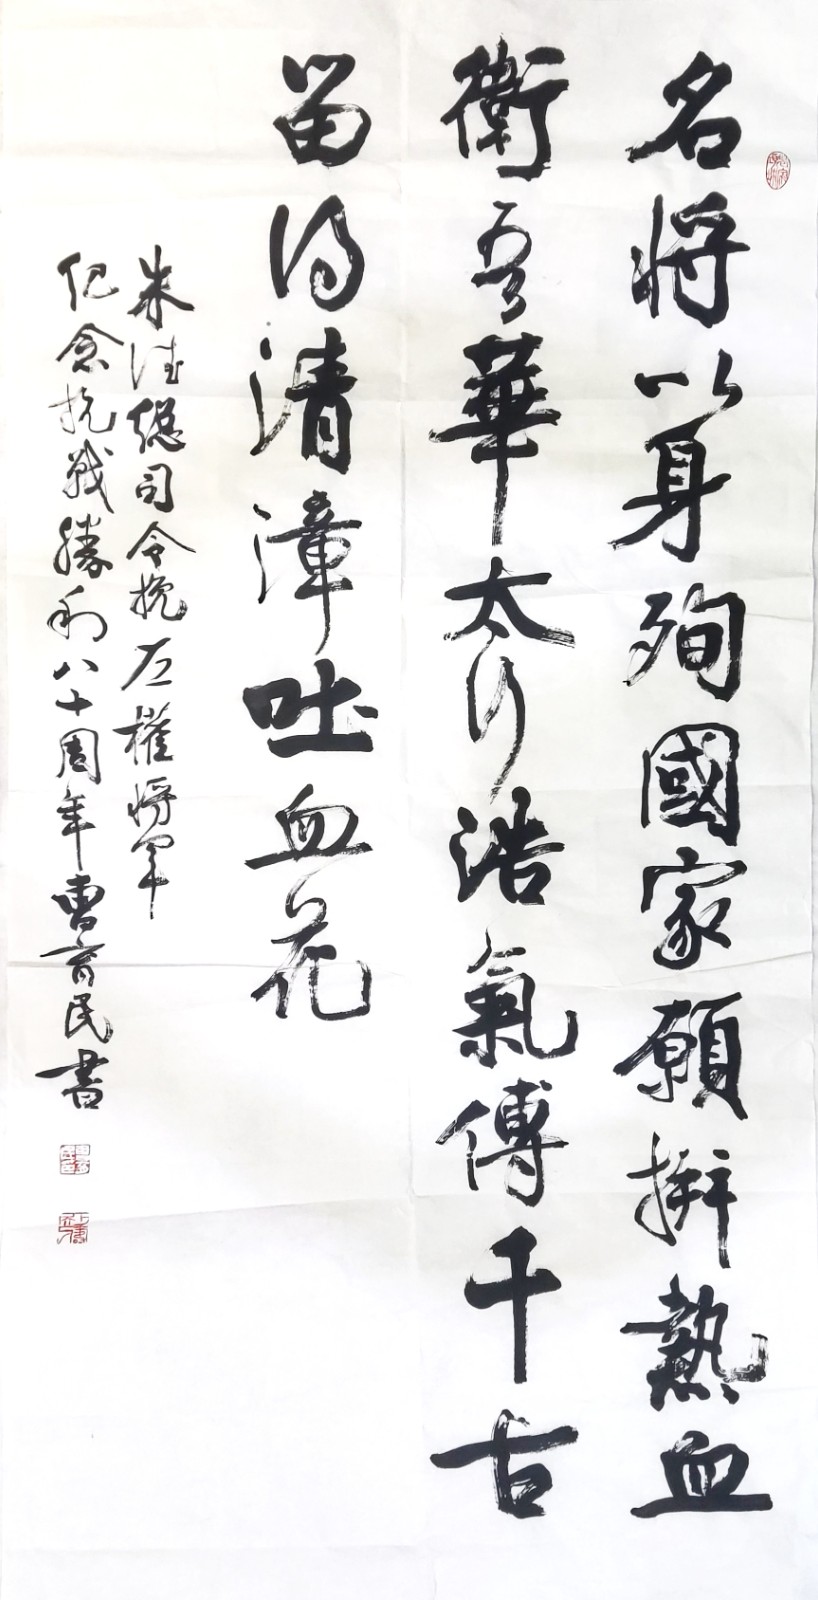 名将以身殉國家願拚熱血
衛吾華太行浩氣傳千古
留得清漳吐血花
朱德總司令挽左權將軍
纪念抗戰勝利八十周年曹育民書